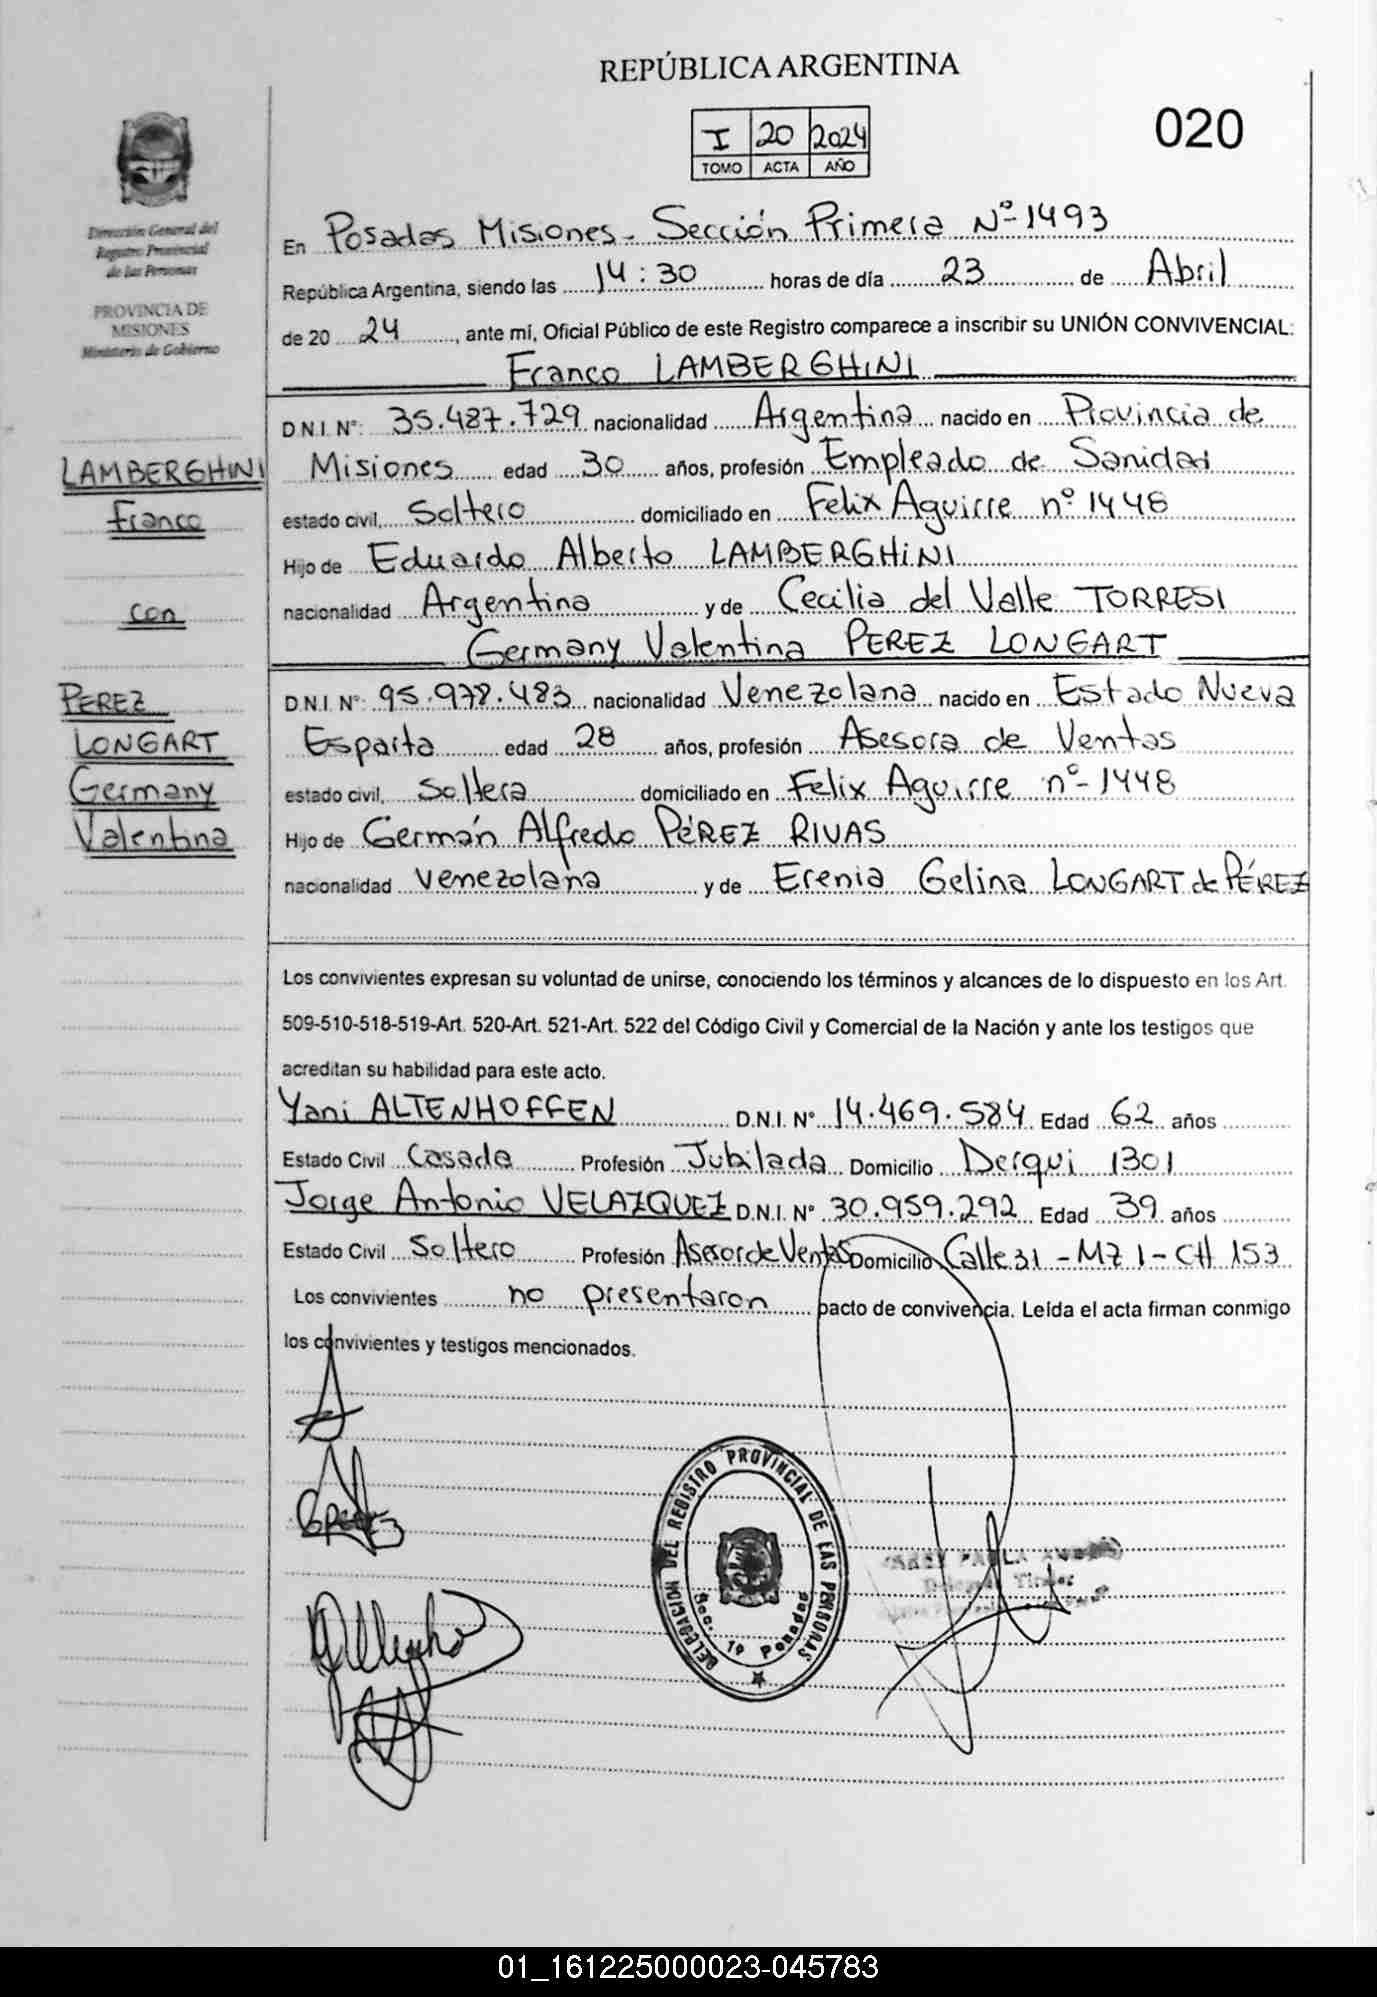 REPÚBLICA ARGENTINA
I 20 2024
TOMO ACTA AÑO
020
Dirección General del
Registro Provincial
de las Personas
PROVINCIA DE
MISIONES
Ministerio de Gobierno
En Posadas Misiones - Sección Primera Nº 1493
República Argentina, siendo las 14:30 horas de día 23 de Abril
de 20 24, ante mí, Oficial Público de este Registro comparece a inscribir su UNIÓN CONVIVENCIAL:
Franco LAMBERGHINI
D.N.I. Nº: 35.487.729 nacionalidad Argentina nacido en Provincia de
Misiones edad 30 años, profesión Empleado de Sanidad
estado civil, Soltero domiciliado en Felix Aguirre nº 1448
Hijo de Eduardo Alberto LAMBERGHINI
nacionalidad Argentina y de Cecilia del Valle TORRESI
Germany Valentina PEREZ LONGART
D.N.I. Nº: 95.978.483 nacionalidad Venezolana nacido en Estado Nueva
Esparta edad 28 años, profesión Asesora de Ventas
estado civil, Soltera domiciliado en Felix Aguirre nº 1448
Hijo de Germán Alfredo PÉREZ RIVAS
nacionalidad venezolana y de Erenia Gelina LONGART de PÉREZ
LAMBERGHINI
Franco
con
PEREZ
LONGART
Germany
Valentina
Los convivientes expresan su voluntad de unirse, conociendo los términos y alcances de lo dispuesto en los Art.
509-510-518-519-Art. 520-Art. 521-Art. 522 del Código Civil y Comercial de la Nación y ante los testigos que
acreditan su habilidad para este acto.
Yani ALTENHOFFEN D.N.I. Nº 14.469.584 Edad 62 años
Estado Civil Casada Profesión Jubilada Domicilio Derqui 1301
Jorge Antonio VELAZQUEZ D.N.I. Nº 30.959.292 Edad 39 años
Estado Civil Soltero Profesión Asesor de Ventas Domicilio Calle 31 - MZ 1 - CH 153
Los convivientes no presentaron pacto de convivencia. Leída el acta firman conmigo
los convivientes y testigos mencionados.
DELEGACION DEL REGISTRO PROVINCIAL DE LAS PERSONAS
Sec. 1º Posadas
01_161225000023-045783